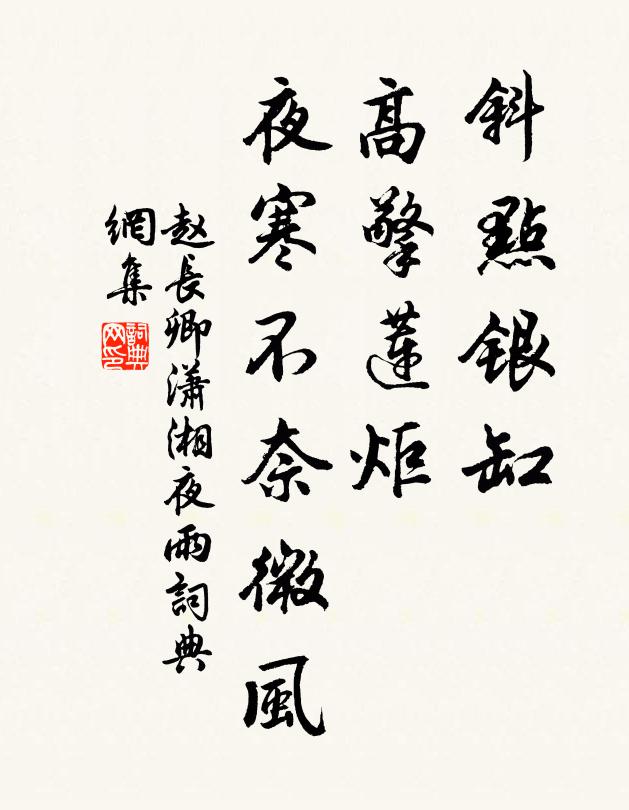 斜點銀缸
高擎蓮炬
夜寒不奈微風
赵長卿瀟湘夜雨詞典
網集
詞典
网印